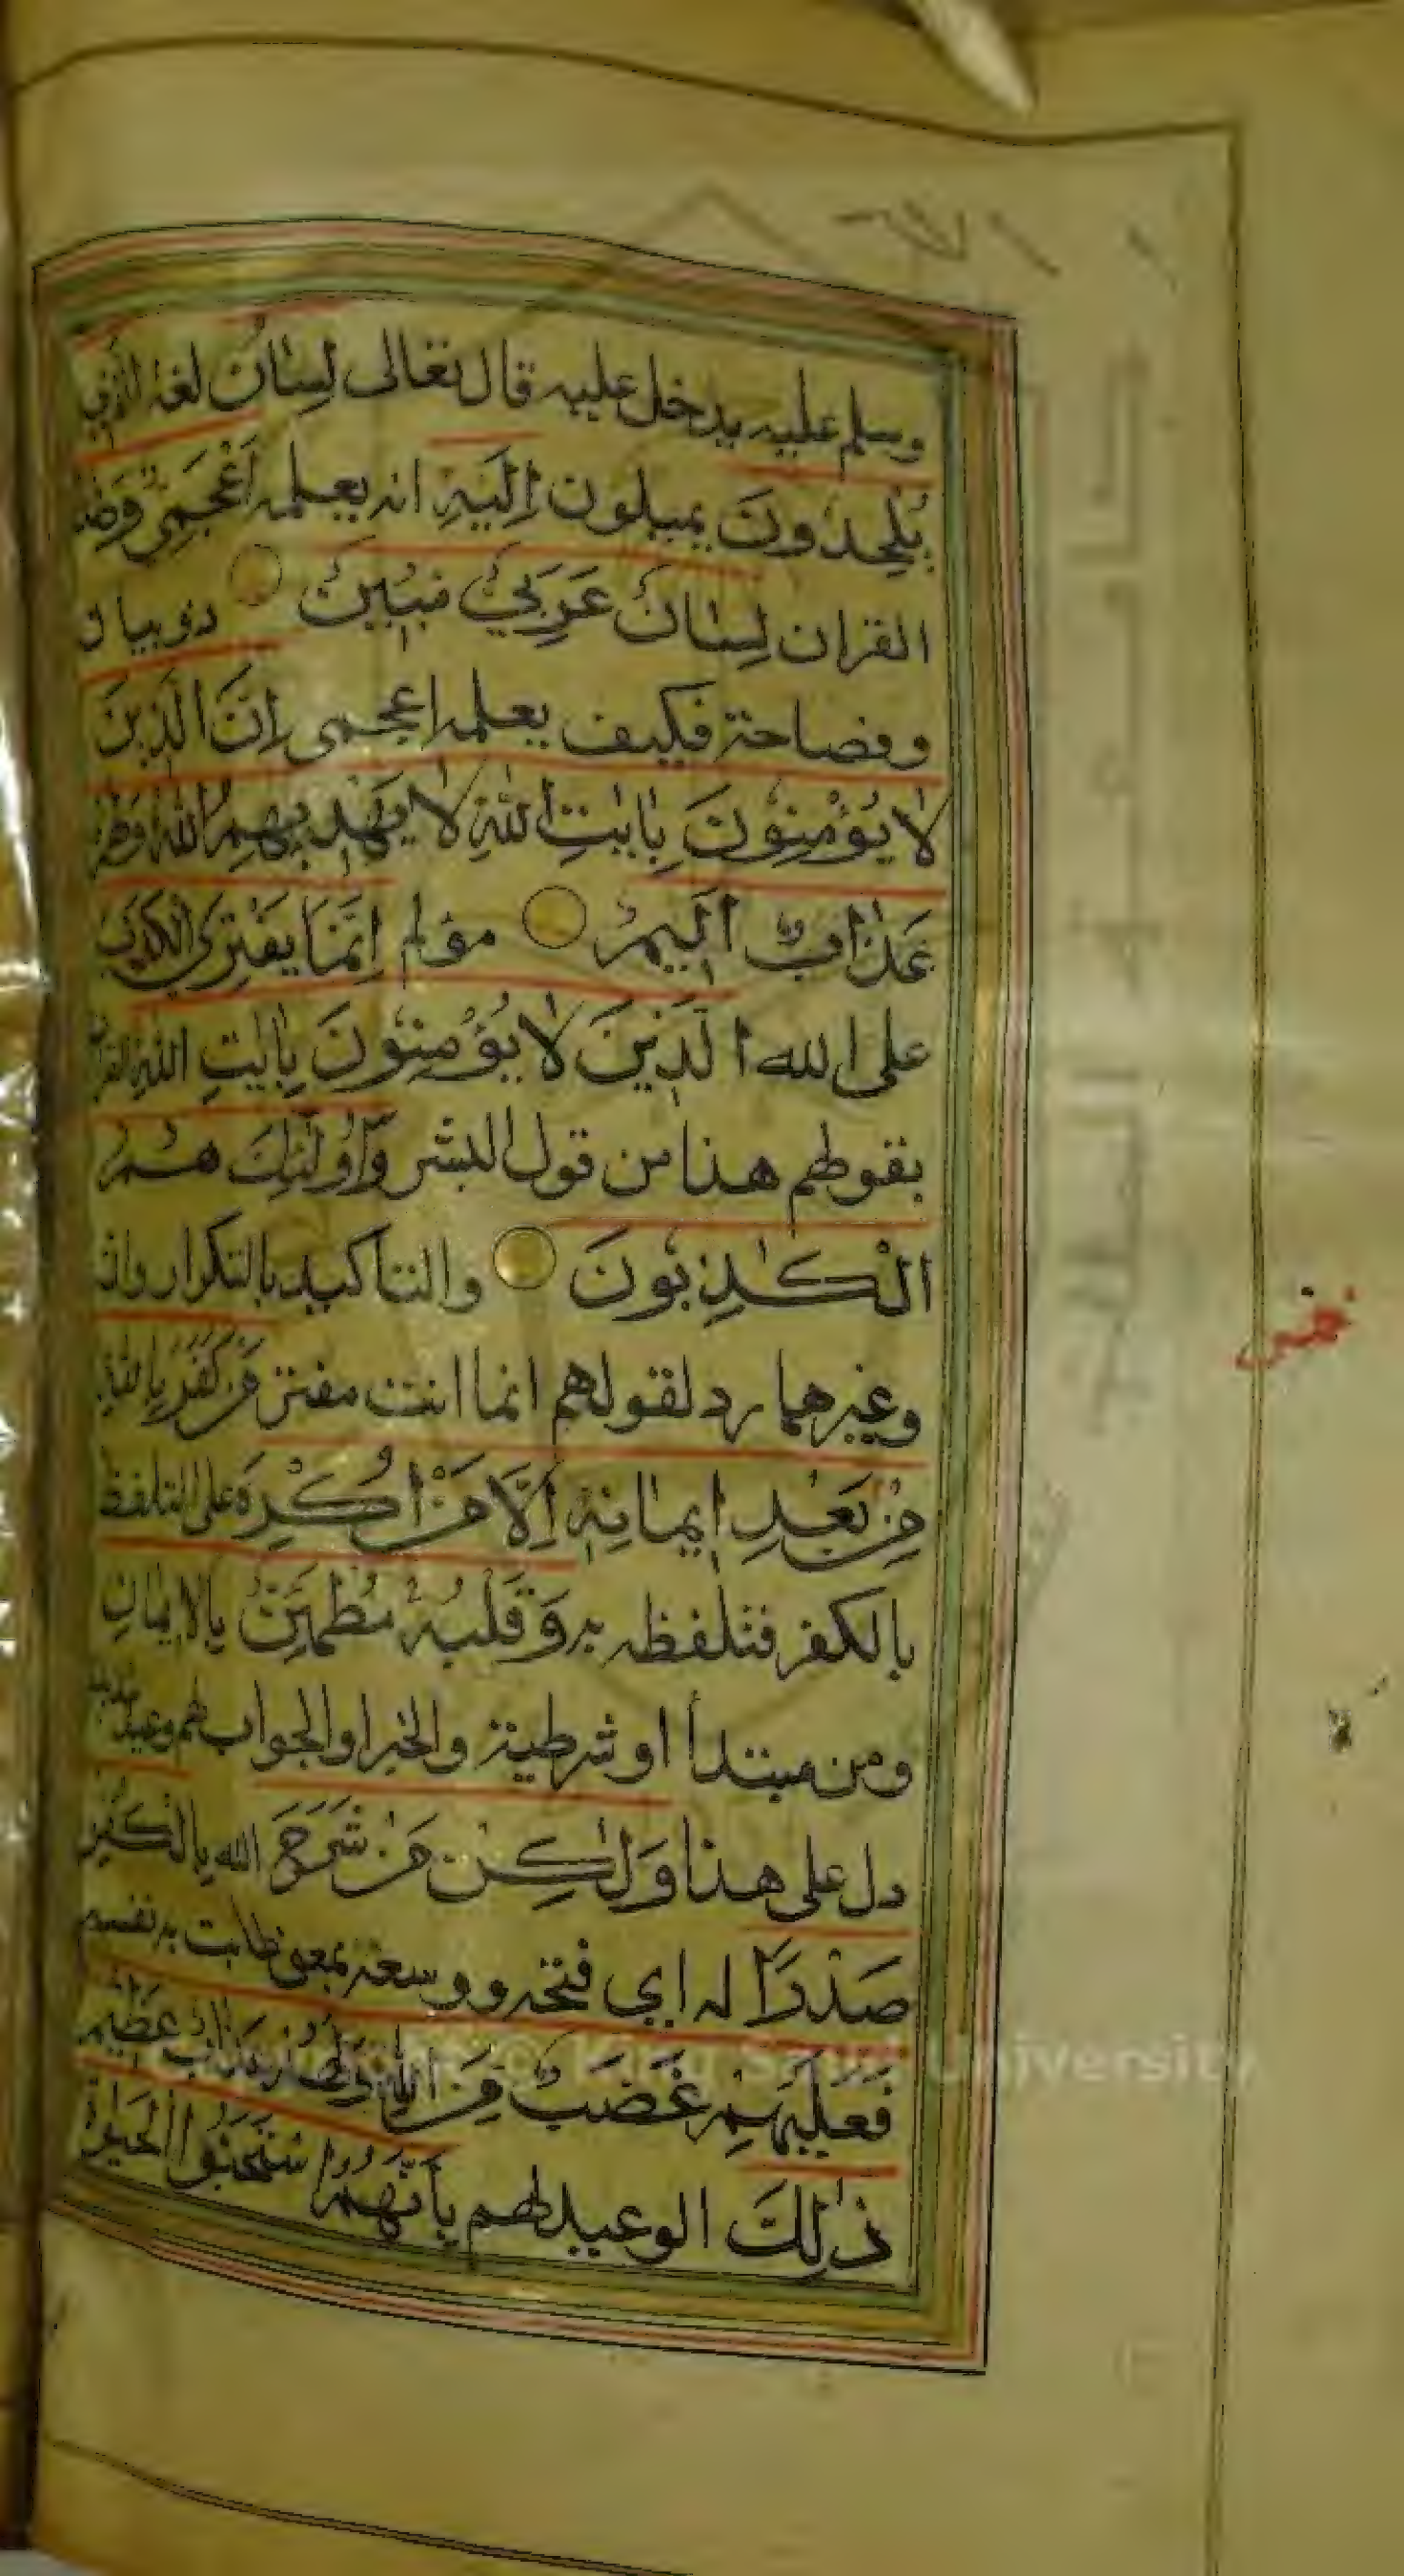 وسلم عليه يدخل عليه قال تعالى لِسَانُ لغة الَّذِي
يُلْحِدُونَ يميلون اِلَيْهِ انه يعلمه اَعْجَمِيٌّ وَهٰذَا
القران لِسَانٌ عَرَبِيٌّ مُبِينٌ ذو بيان
وفصاحة فكيف يعلمه اعجمى اِنَّ الَّذِينَ
لَا يُؤْمِنُونَ بِاٰيٰتِ اللّٰهِ لَا يَهْدِيهِمُ اللّٰهُ وَلَهُمْ
عَذَابٌ اَلِيمٌ مؤلم اِنَّمَا يَفْتَرِي الْكَذِبَ
على الله الَّذِينَ لَا يُؤْمِنُونَ بِاٰيٰتِ اللّٰهِ القران
بقولهم هذا من قول البشر وَاُولٰئِكَ هُمُ
الْكٰذِبُونَ والتاكيد بالتكرار وان
وغيرهما رد لقولهم انما انت مفتر مَنْ كَفَرَ بِاللّٰهِ
مِنْ بَعْدِ اِيمَانِهٖ اِلَّا مَنْ اُكْرِهَ على التلفظ
بالكفر فتلفظ به وَقَلْبُهُ مُطْمَئِنٌّ بِالْاِيمَانِ
ومن مبتدأ او شرطية والخبر او الجواب لهم وعيد شديد
دل على هذا وَلٰكِنْ مَنْ شَرَحَ الله بِالْكُفْرِ
صَدْرًا له اي فتحه ووسعه بمعنى طابت به نفسه
فَعَلَيْهِمْ غَضَبٌ مِنَ اللّٰهِ وَلَهُمْ عَذَابٌ عَظِيمٌ
ذٰلِكَ الوعيد لهم بِاَنَّهُمُ اسْتَحَبُّوا الْحَيٰوةَ
© King Saud University